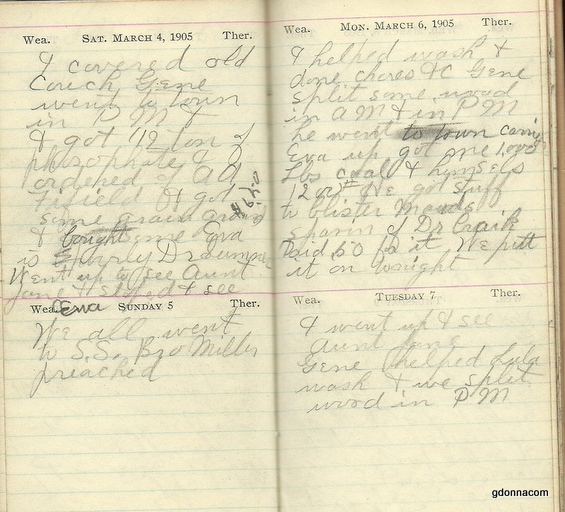 Wea. SAT. MARCH 4, 1905 Ther.
I covered old
Couch Gene
went to town
in P M &
& got 1/2 ton of
phosphate I
ordered of A A
Fifield & got
some grain
& bought some Eva
is
Went up to see Aunt
Jane & stayed & see
Eva
Wea. SUNDAY 5 Ther.
We all went
to S.S. Bro Miller
preached
Wea. MON. MARCH 6, 1905 Ther.
I helped wash &
done chores &c Gene
split some wood
in A M & in P M
he went to town
Eva up got one 1,000
Lbs coal &
He got stuff
to blister
of Dr Craik
Paid 50 for it. We putt
it on to night
Wea. TUESDAY 7 Ther.
I went up & see
Aunt Jane
Gene helped Lula
wash & we split
wood in P M
gdonnacom